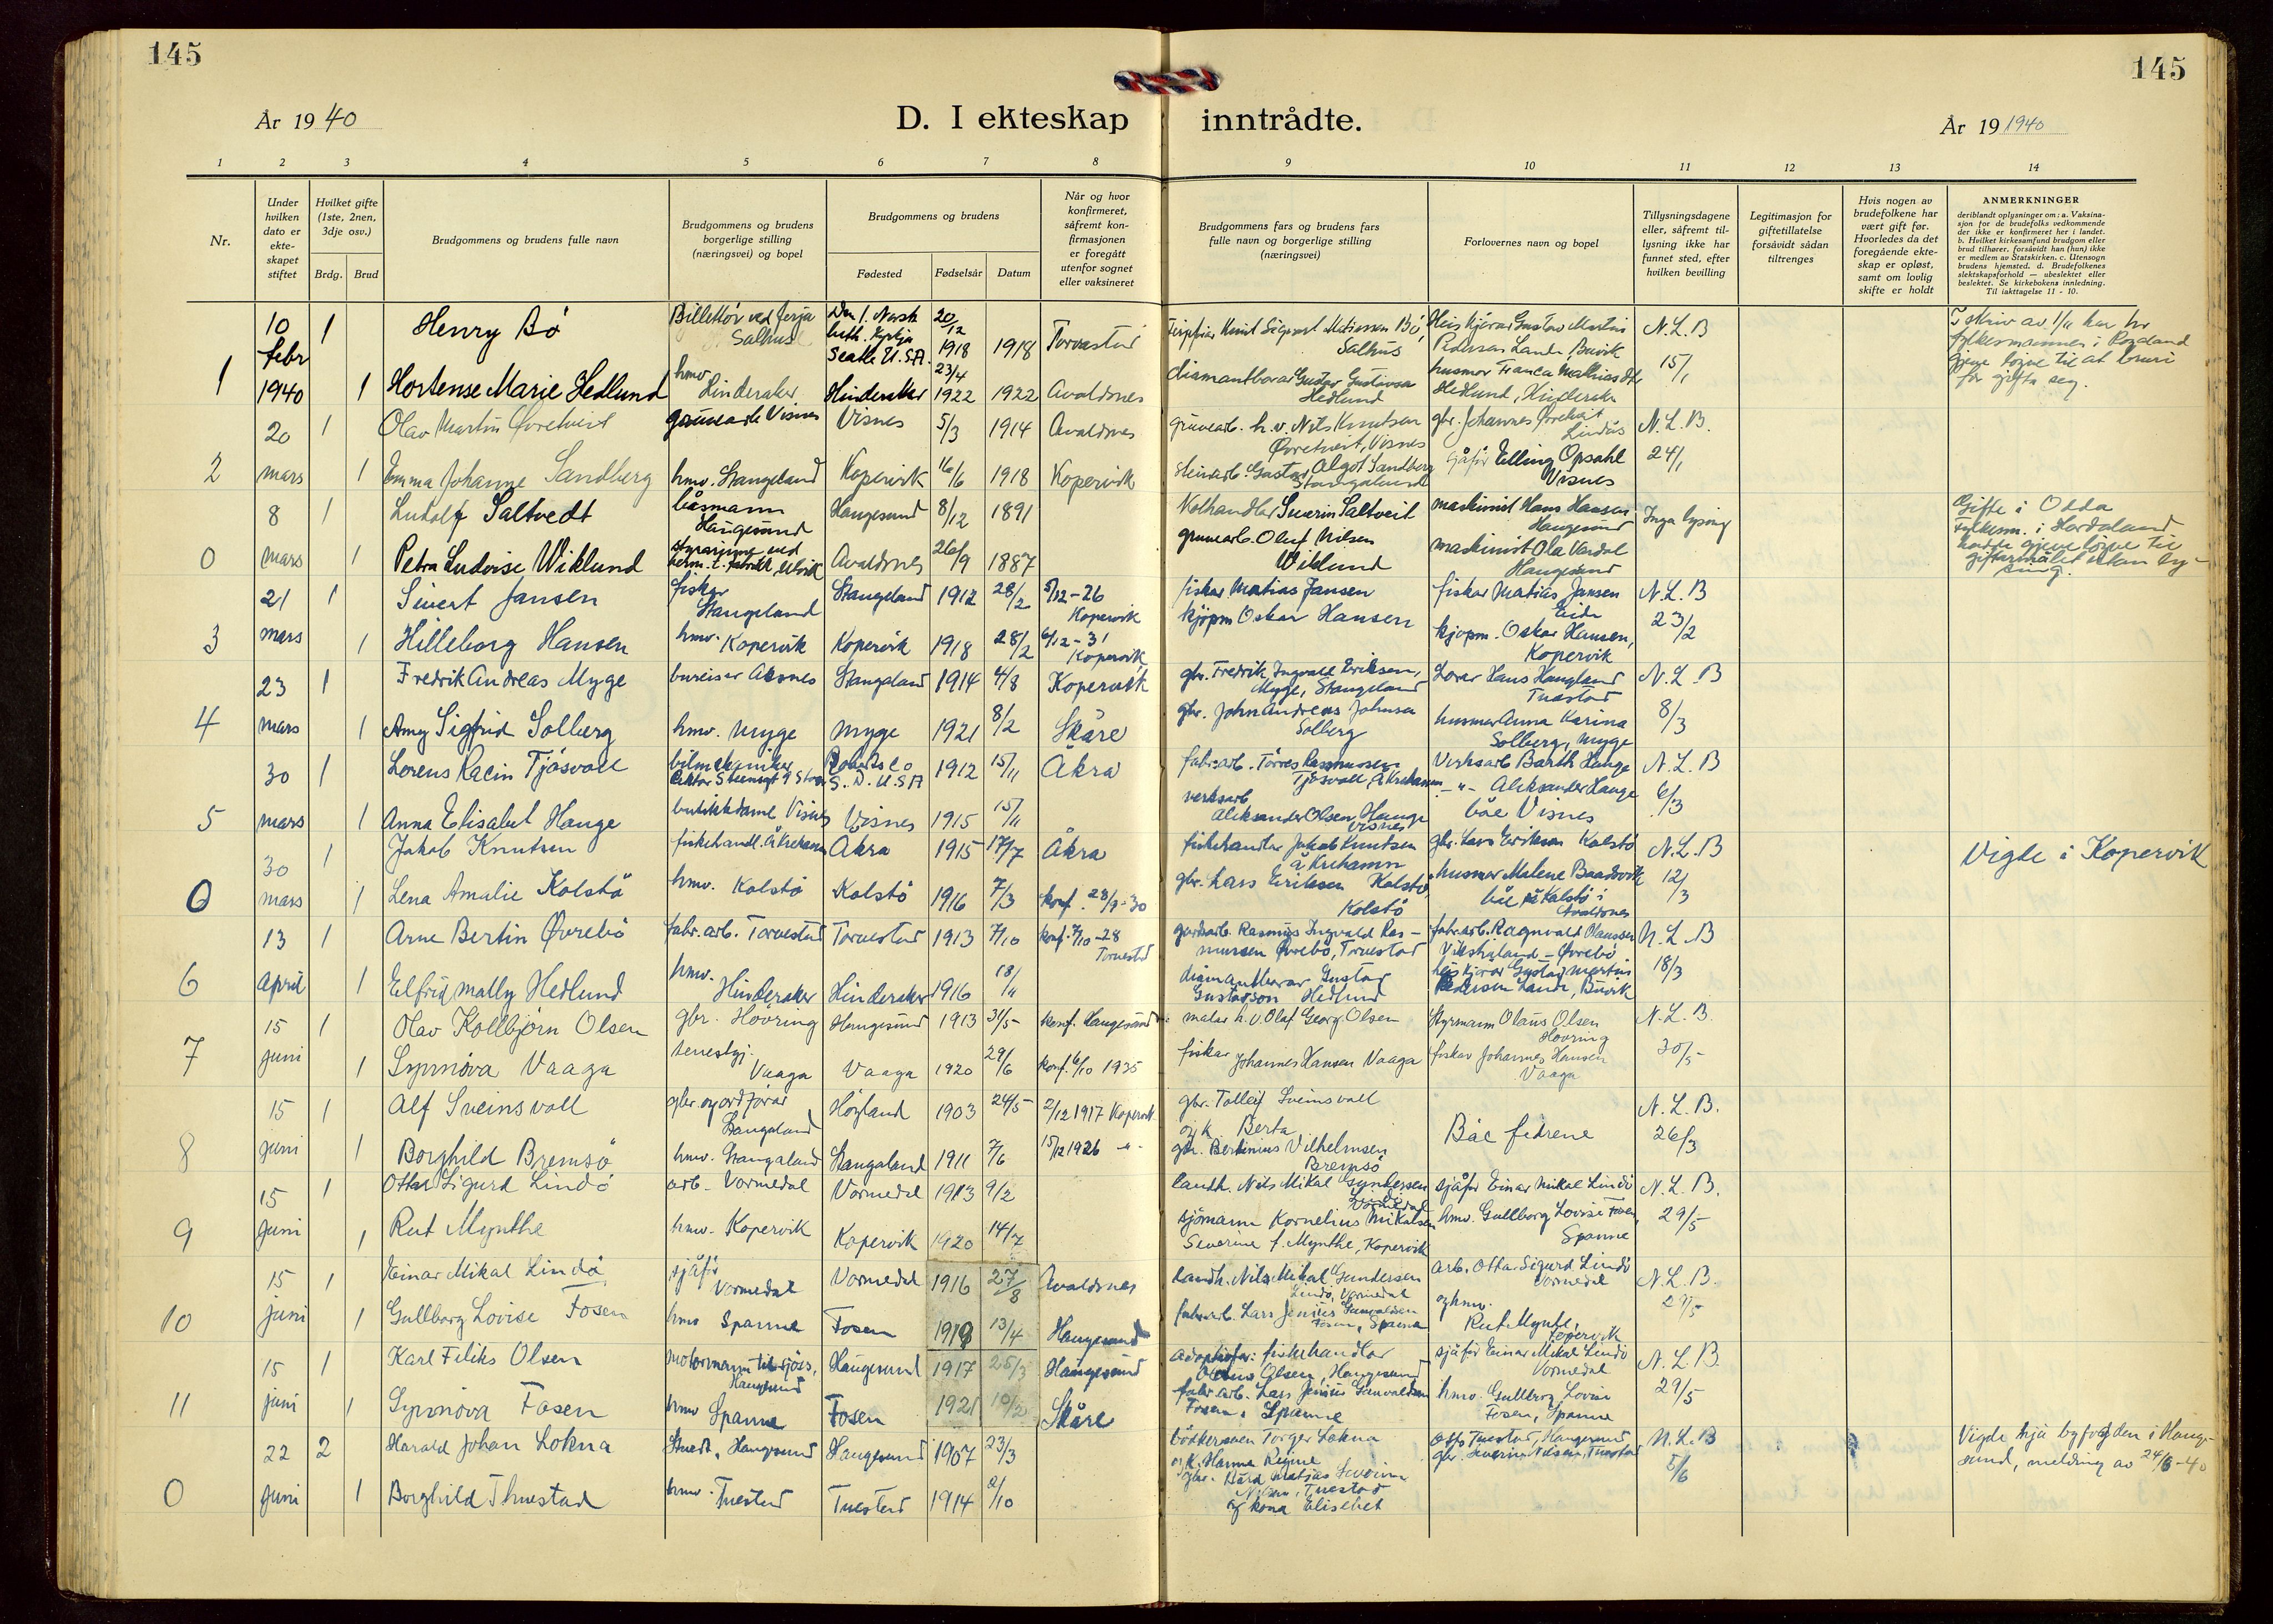 145
145
År 1940
D. I ekteskap inntrådte.
År 19 1940
1 2 3 4 5 6 7 8 9 10 11 12 13 14
Nr.
Under hvilken dato er ekte-skapet stiftet
Hvilket gifte (1ste, 2nen, 3dje osv.)
Brdg. Brud
Brudgommens og brudens fulle navn
Brudgommens og brudens borgerlige stilling (næringsvei) og bopel
Brudgommens og brudens
Fødested Fødselsår Datum
Når og hvor konfirmeret, såfremt kon-firmasjonen er foregått utenfor sognet eller vaksineret
Brudgommens fars og brudens fars fulle navn og borgerlige stilling (næringsvei)
Forlovernes navn og bopel
Tillysningsdagene eller, såfremt til-lysning ikke har funnet sted, efter hvilken bevilling
Legitimasjon for giftetillatelse forsåvidt sådan tiltrenges
Hvis nogen av brudefolkene har vært gift før. Hvorledes da det foregående ekte-skap er opløst, samt om lovlig skifte er holdt
ANMERKNINGER
deriblandt oplysninger om: a. Vaksina-
sjon for de brudefolks vedkommende
der ikke er konfirmeret her i landet.
b. Hvilket kirkesamfund brudgom eller
brud tilhører, forsåvidt han (hun) ikke
er medlem av Statskirken. c. Utensogn
brudens hjemsted. d. Brudefolkenes
slektskapsforhold — ubeslektet eller
beslektet. Se kirkebokens innledning.
Til iakttagelse 11 - 10.
10 febr 1 Henry Bö Billettör ved ferja Salhus Seatle U.S.A. 20/12 1918 1918 Torvastad Salhus Buvik N.L.B
1 1940 1 Hortense Marie Hedlund hmv. Hinderaker Hinderaker 23/4 1922 1922 Avaldsnes diamantborar Gustav Gustavsen Hedlund Hedlund, Hinderaker 15/1
20 1 Olav Martin Øvretveit gruvearb Visnes Visnes 5/3 1914 Avaldsnes gruvearb. h.v. Nils Knutsen Øvretveit, Visnes gbr. Johannes Øvretveit Lindås N.L.B.
2 mars 1 Emma Johanne Sandberg hmv. Stangeland Kopervik 16/6 1918 Kopervik steinarb. Gustav Algot Sandberg Stangeland sjåfør Elling Opsahl Visnes 24/1
8 1 Ludolf Saltvedt Haugesund Haugesund 8/12 1891 Severin Saltveit maskinist Hans Hansen Haugesund Inga lysing Gifte i Odda
0 mars 1 Petra Ludvise Wiklund Avaldsnes 26/9 1887 gruvearb. Olaf Nilsen Wiklund maskinist Ola Vardal Haugesund
21 1 Sivert Jansen fiskar Stangeland Stangeland 1912 28/2 8/12-26 Kopervik fiskar Matias Jansen fiskar Matias Jansen Eide N.L.B
3 mars 1 Hilleborg Hansen hmv. Kopervik Kopervik 1918 28/2 6/12-31 Kopervik kjöpm Oskar Hansen kjöpm. Oskar Hansen, Kopervik 23/2
23 1 Fredrik Andreas Myge bureiser Stangeland 1914 4/8 Kopervik gbr. Fredrik Ingvald Eriksen, Myge, Stangeland Lærar Hans Haugland Tuastad N.L.B
4 mars 1 Amy Sigfrid Solberg hmv. Myge Myge 1921 8/2 Skåre gbr. John Andreas Johnsen Solberg husmor Anna Karina Solberg, Myge 8/3
30 1 Lorens Racin Tjösvoll bilmekaniker Roberts Co S.D. U.S.A 1912 15/11 Åkra fabr.arb. Törres Rasmussen Tjösvoll, Åkrehamn Verksarb Barth Hauge N.L.B
5 mars 1 Anna Elisabet Hauge butikkdame Visnes Visnes 1915 15/11 verksarb Aleksander Olsen Hauge Visnes -"- Aleksander Hauge båe Visnes 6/3
30 1 Jakob Knutsen fiskehandl. Åkrehamn Åkra 1915 17/7 Åkra fiskehandlar Jakob Knutsen Åkrehamn gbr. Lars Eriksen Kolstö N.L.B Vigde i Kopervik
0 mars 1 Lena Amalie Kolstö hmv. Kolstö Kolstö 1916 7/3 konf. 28/9-30 gbr. Lars Eriksen Kolstö Kolstö husmor Malene båe på Kolstö i Avaldsnes 12/3
13 1 Arne Bertin Øvrebö fabr.arb. Torvestad Torvestad 1913 7/10 konf. 7/10-28 Torvestad gardarb. Rasmus Ingvald Ras-mussen Øvrebö, Torvestad fabr.arb. Ragnvald Olaussen N.L.B
6 April 1 Elfrid Mally Hedlund hmv. Hinderaker Hinderaker 1916 18/11 diamantborar Gustav Gustavson Hedlund heiskjörar Gustav Martin Pedersen Lande, Buvik 18/3
15 1 Olav Kolbjörn Olsen gbr. Hovring Haugesund 1913 31/5 konf. Haugesund malar h.v. Olaf Georg Olsen Styrmann Olaus Olsen Hovring N.L.B.
7 juni 1 Synnöva Vaaga tenestgj. Vaaga Vaaga 1920 29/6 konf. 6/10 1935 fiskar Johannes Hansen Vaaga fiskar Johannes Hansen Vaaga 30/5
15 1 Alf Sveinsvoll gbr. og ordförar Stangeland Högland 1903 24/5 2/12 1917 Kopervik gbr. Tolleif Sveinsvoll og k. Berta Båe fedrene N.L.B.
8 juni 1 Borghild Bremsö hmv. Stangaland Stangaland 1911 7/6 15/12 1926 -"- gbr. Bertinius Vilhelmsen Bremsö 26/3
15 1 Ottar Sigurd Lindö arb. Vormedal Vormedal 1913 9/2 landh. Nils Mikal Gundersen Lindö Vormedal sjåför Einar Mikal Lindö N.L.B.
9 juni 1 Rut Mynthe hmv. Kopervik Kopervik 1920 14/7 sjömann Kornelius Mikalsen Severine f. Mynthe, Kopervik hmv. Gullborg Lovise Fosen, Spanne 29/5
15 1 Einar Mikal Lindö sjåför Vormedal Vormedal 1916 27/8 Avaldsnes landh. Nils Mikal Gundersen Lindö, Vormedal arb. Ottar Sigurd Lindö Vormedal N.L.B.
10 juni 1 Gullborg Lovise Fosen hmv Spanne Fosen 1919 13/4 Haugesund fabr.arb. Lars Jenius Gunvaldsen Fosen, Spanne og hmv. Rut Mynte, Kopervik 29/5
15 1 Karl Feliks Olsen motormann til sjöss, Haugesund Haugesund 1917 25/3 Haugesund Adoptivfar: fiskehandlar Olsen, Haugesund sjåför Einar Mikal Lindö Vormedal N.L.B.
11 juni 1 Synnöva Fosen hmv Spanne Fosen 1921 10/2 Skåre fabr.arb. Lars Jenius Gunvaldsen Fosen, Spanne hmv. Gullborg Lovise Fosen, Spanne 29/5
22 2 Harald Johan Lokna Stuert, Haugesund Haugesund 1907 23/3 Torger Lokna og k. Hanna Regine Otto Tuestad, Haugesund N.L.B Vigde hjå byfogden i Hauge-sund, melding av 24/6-40
0 juni 1 Borghild Thuestad hmv. Tuestad Tuestad 1914 2/10 gbr. Matias Severin Nilsen, Tuestad og kona Elisebet gbr. Severin Nilsen, Tuestad 5/6